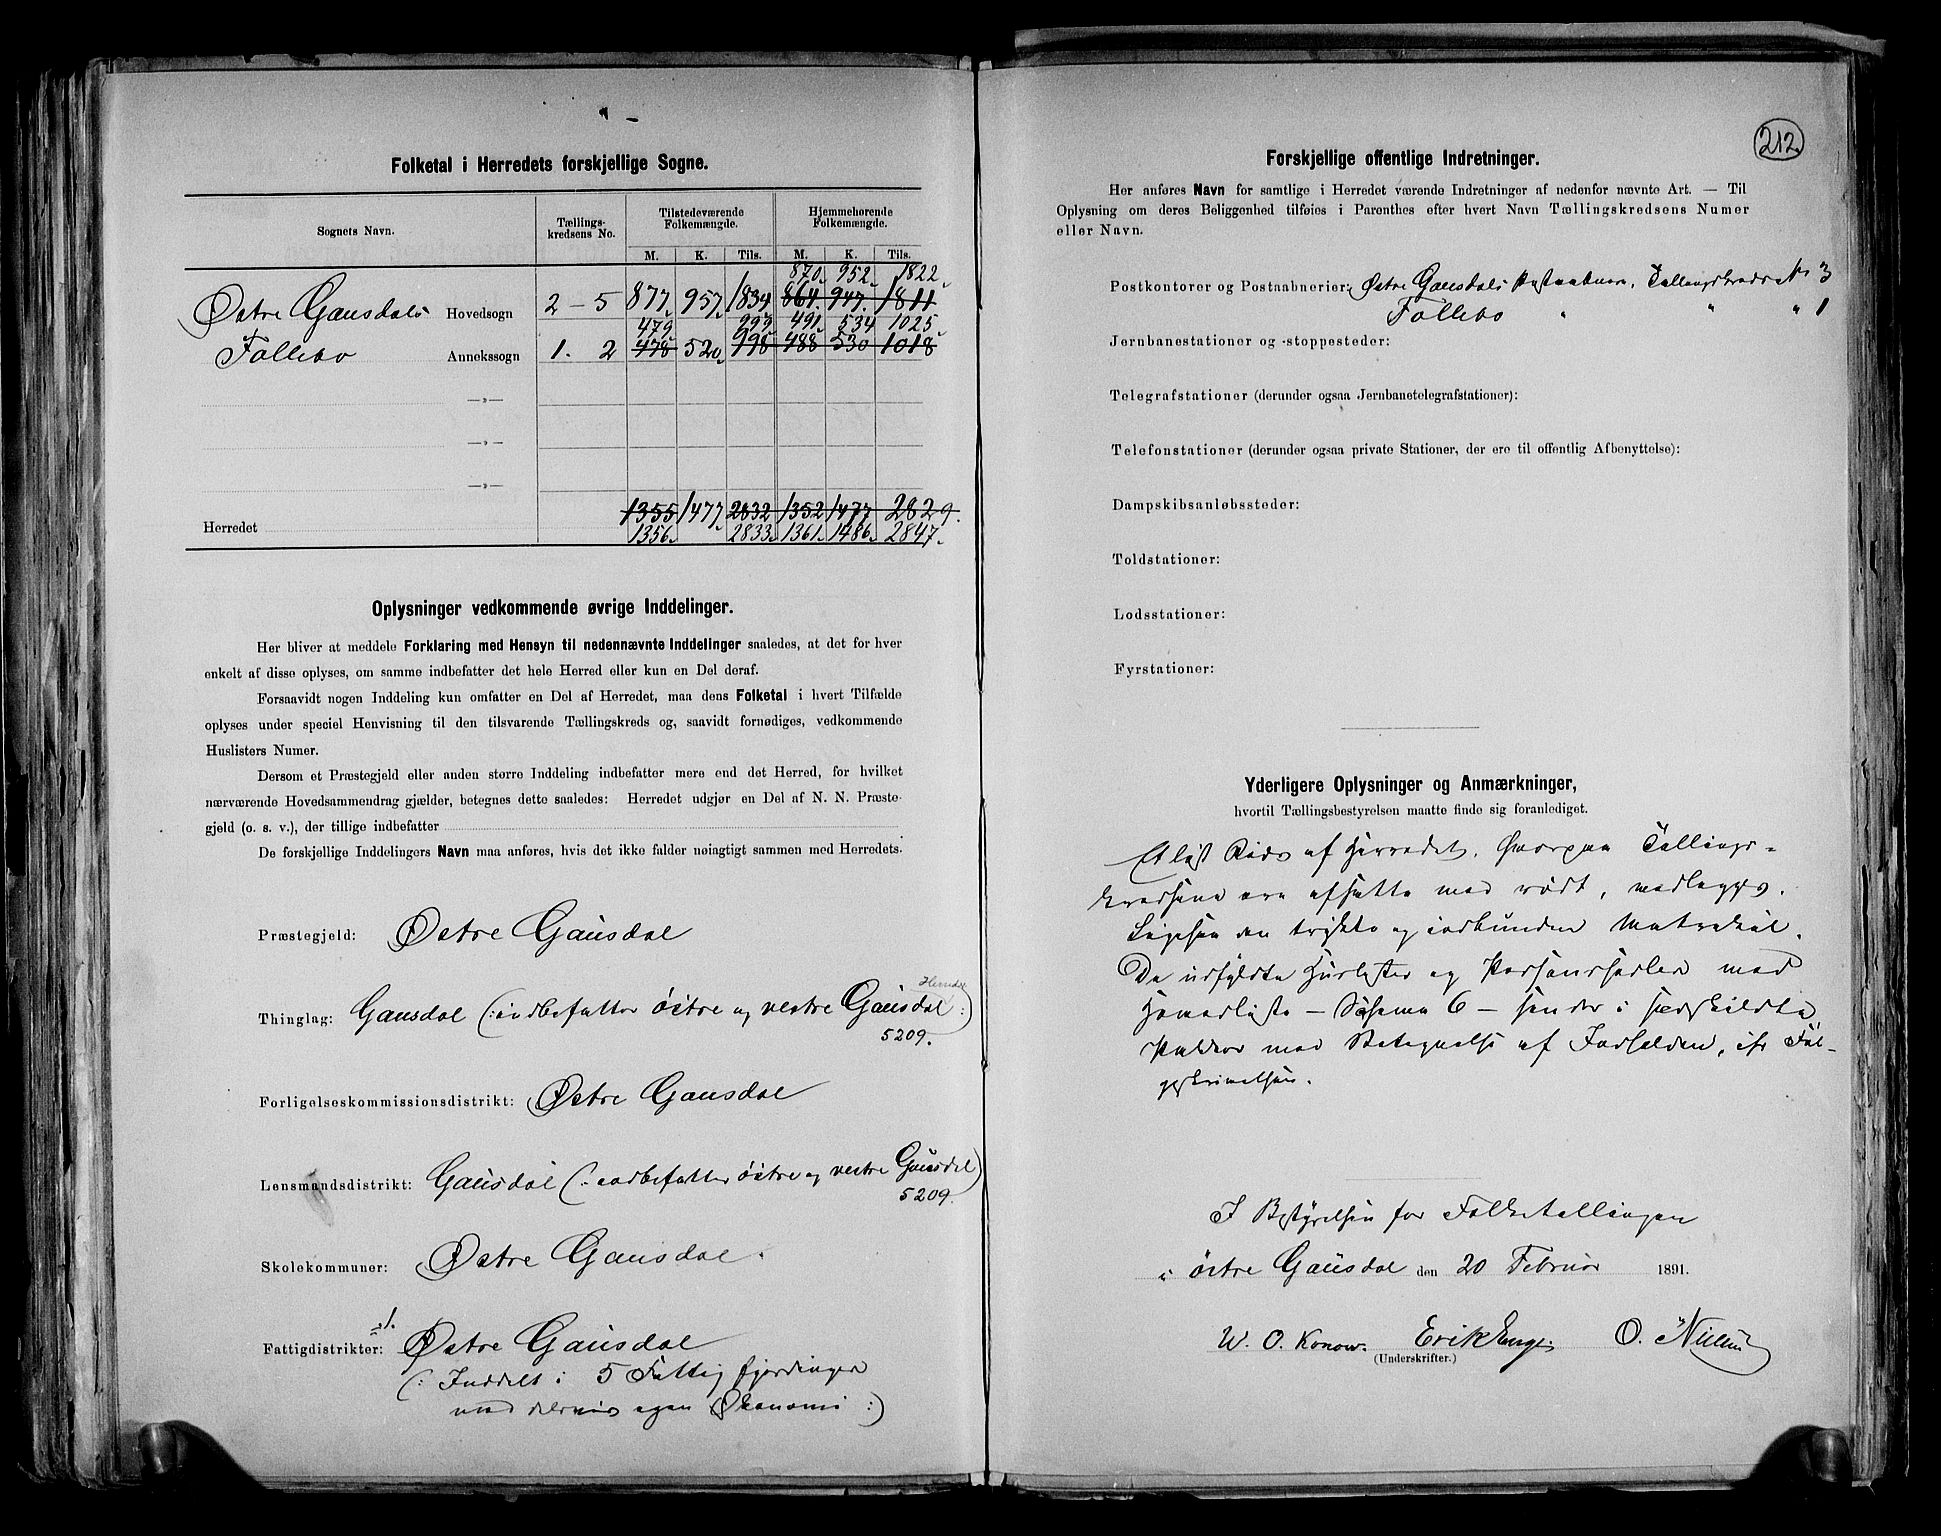 Folketal i Herredets forskjellige Sogne.
Sognets Navn. Tællings-kredsens No. Tilstedeværende Folkemængde. Hjemmehørende Folkemængde.
M. K. Tils. M. K. Tils.
870. 952. 1822.
Østre Gausdals Hovedsogn 2 – 5 877. 957. 1834 864. 947. 1811
479. 999 491. 534 1025.
Follebo Annekssogn 1. 2 478 520. 998 488 530 1018
—»—
—»—
—»—
1355 1477. 2832 1352 1477 2829.
Herredet 1356. 2833. 1361. 1486. 2847.
Oplysninger vedkommende øvrige Inddelinger.
Her bliver at meddele Forklaring med Hensyn til nedennævnte Inddelinger saaledes, at det for hver
enkelt af disse oplyses, om samme indbefatter det hele Herred eller kun en Del deraf.
Forsaavidt nogen Inddeling kun omfatter en Del af Herredet, maa dens Folketal i hvert Tilfælde
oplyses under speciel Henvisning til den tilsvarende Tællingskreds og, saavidt fornødiges, vedkommende
Huslisters Numer.
Dersom et Præstegjeld eller anden større Inddeling indbefatter mere end det Herred, for hvilket
nærværende Hovedsammendrag gjælder, betegnes dette saaledes: Herredet udgjør en Del af N. N. Præste-
gjeld (o. s. v.), der tillige indbefatter
De forskjellige Inddelingers Navn maa anføres, hvis det ikke falder nøiagtigt sammen med Herredets.
Præstegjeld: Østre Gausdal
Herred
Thinglag: Gausdal (: indbefatter østre og vestre Gausdal :)
5209.
Forligelseskommissionsdistrikt: Østre Gausdal
Lensmandsdistrikt: Gausdal (: indbefatter østre og vestre Gausdal)
5209.
Skolekommuner: Østre Gausdal.
Fattigdistrikter: Østre Gausdal
(: Inddelt i 5 Fattigfjerdinger
med deres egen Økonomi :)
212.
Forskjellige offentlige Indretninger.
Her anføres Navn for samtlige i Herredet værende Indretninger af nedenfor nævnte Art. — Til
Oplysning om deres Beliggenhed tilføies i Parenthes efter hvert Navn Tællingskredsens Numer
eller Navn.
Postkontorer og Postaabnerier: Østre Gausdals Postaabneri, Tællingskreds No 3
Follebo " " " 1
Jernbanestationer og -stoppesteder:
Telegrafstationer (derunder ogsaa Jernbanetelegrafstationer):
Telefonstationer (derunder ogsaa private Stationer, der ere til offentlig Afbenyttelse):
Dampskibsanløbssteder:
Toldstationer:
Lodsstationer:
Fyrstationer:
Yderligere Oplysninger og Anmærkninger,
hvortil Tællingsbestyrelsen maatte finde sig foranlediget.
Et løst Rids af Herredet, hvorpaa Tællings-
kredsene ere afsatte med rødt, vedlægges.
Ligesaa den trykte og indbundne Matrikul.
De udfyldte Huslister og Personsedler med
Hovedliste – Schema 6 – sendes i særskildte
Pakker med Betegnelse af Indholden, cfr Føl-
geskrivelsen.
I Bestyrelsen for Folketællingen
i østre Gausdal den 20 Februar 1891.
W. O. Konow. Erik Enge. O. Nielsen
(Underskrifter.)